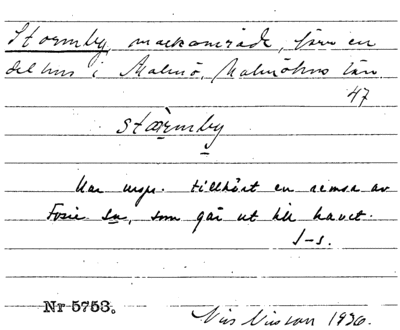 Stormby, markområde, förr en
del hus i Malmö, Malmöhus län
47
stårmby
Har urspr. tillhört en remsa av
Fosie sn, som går ut till havet.
J-s.
Nr 5753.
Nils Nilsson 1936.